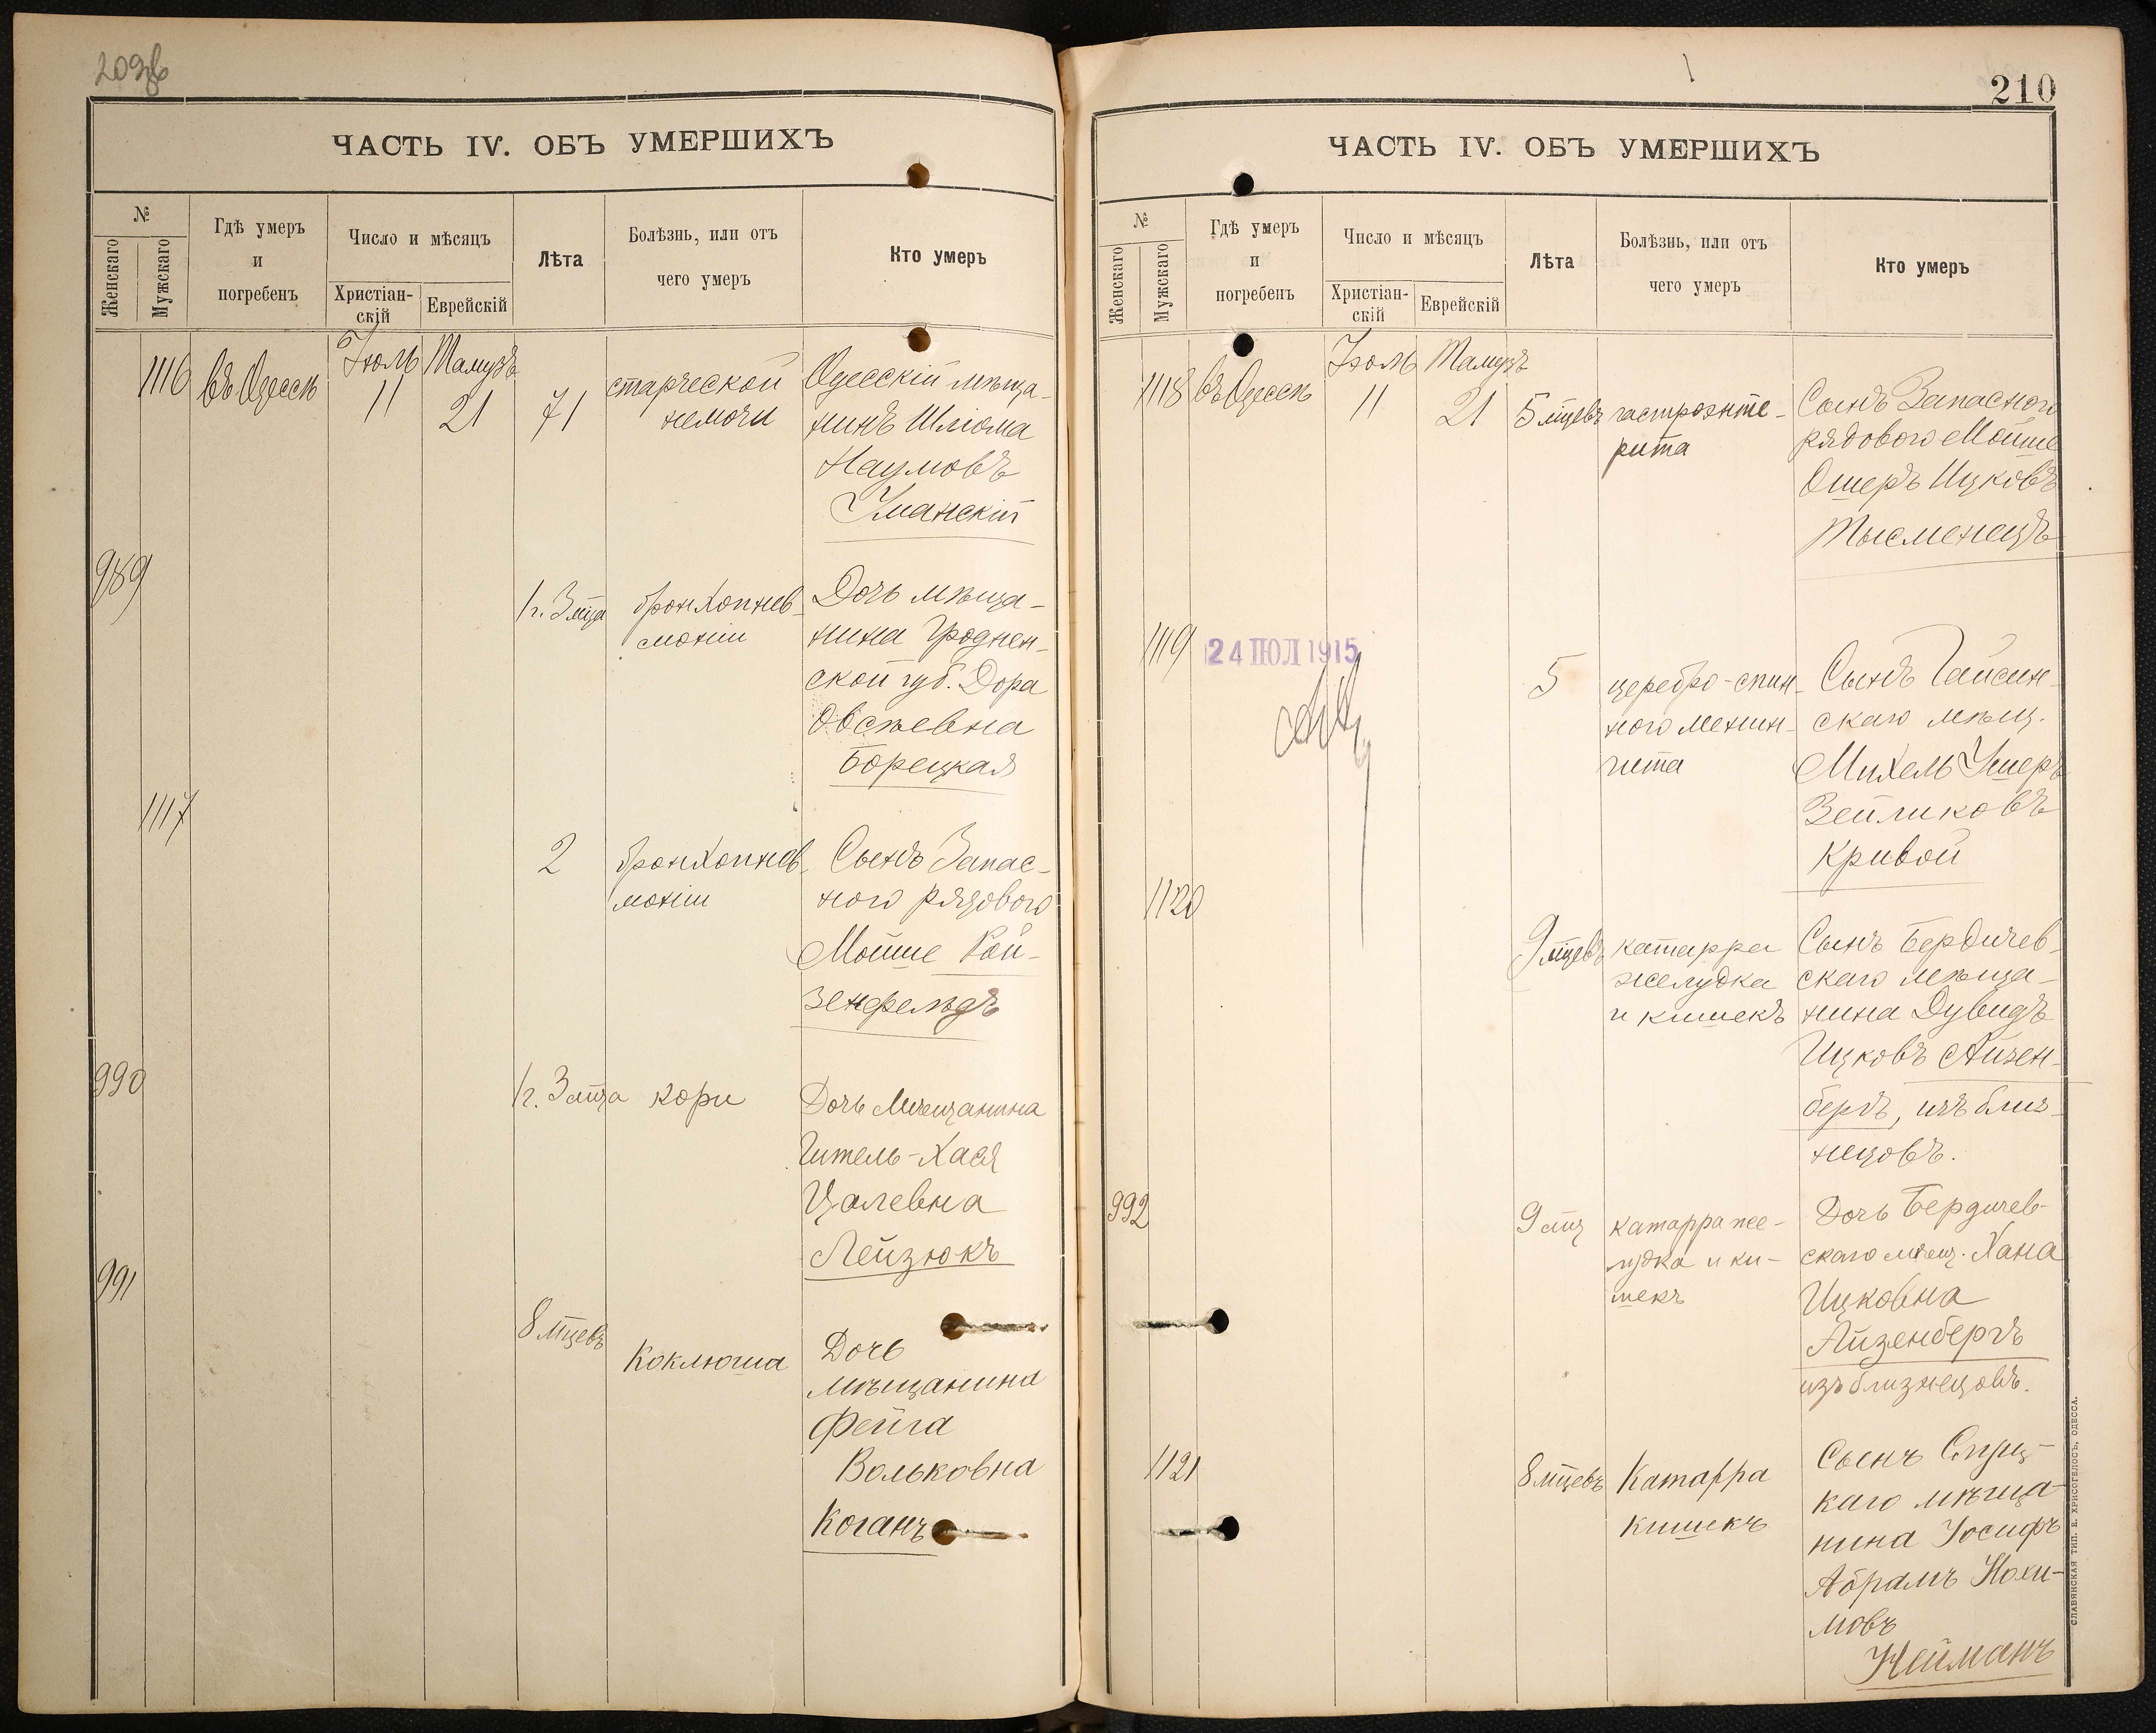 ЧАСТЬ IV. ОБЪ УМЕРШИХЪ
№
Женскаго
Мужскаго
Гдѣ умеръ
и
погребенъ
Число и мѣсяцъ
Христіан-
скій
Еврейскій
Лѣта
Болѣзнь, или отъ
чего умеръ
Кто умеръ
Іюль Тамузъ
1116 въ Одессѣ 11 21 71
старческой
немочи
Одесскій мѣща-
нинъ Шлiома
Наумовъ
Уманскій
989
1г. 3 мца
бронхопнев-
моніи
Дочь мѣща-
нина Гроднен-
ской губ. Дора
Овсѣевна
Борецкая
1117
2
бронхопнев-
моніи
Сынъ Запас-
ного рядового
Мойше Рой-
зенфельдъ
990
1г. 3 мца кори
Дочь Мѣщанина
Гитель-Хася
Цалевна
Лейзюкъ
991
8 мцевъ
Коклюша
Дочь
мѣщанина
Фейга
Вольковна
Коганъ
210
ЧАСТЬ IV. ОБЪ УМЕРШИХЪ
№
Женскаго
Мужскаго
Гдѣ умеръ
и
погребенъ
Число и мѣсяцъ
Христіан-
скій
Еврейскій
Лѣта
Болѣзнь, или отъ
чего умеръ
Кто умеръ
Іюль Тамузъ
1118 въ Одессѣ 11 21 5 мцевъ
гастроэнте-
рита
Сынъ Запасного
рядового Мойше
Ошеръ Ицковъ
Тысменецъ
1119
24 ІЮЛ 1915
5
церебро-спин-
ного менин-
гита
Сынъ Гайсин-
скаго мѣщ.
Михель Ушеръ
Зейликовъ
Кривой
1120
9 мцевъ
катарра
желудка
и кишекъ
Сынъ Бердичев-
скаго мѣща-
нина Дувидъ
Ицковъ Айзен-
бергъ, изъ близ-
нецовъ.
992
9 мц
катарра же-
лудка и ки-
шекъ
Дочь Бердичев-
скаго мѣщ. Хана
Ицковна
Айзенбергъ
изъ близнецовъ.
1121
8 мцевъ
Катарра
кишекъ
Сынъ Слуц-
каго мѣща-
нина Іосифъ
Абрамъ Нохи-
мовъ
Нейманъ
СЛАВЯНСКАЯ ТИП. Е. ХРИСОГЕЛОСЪ, ОДЕССА.